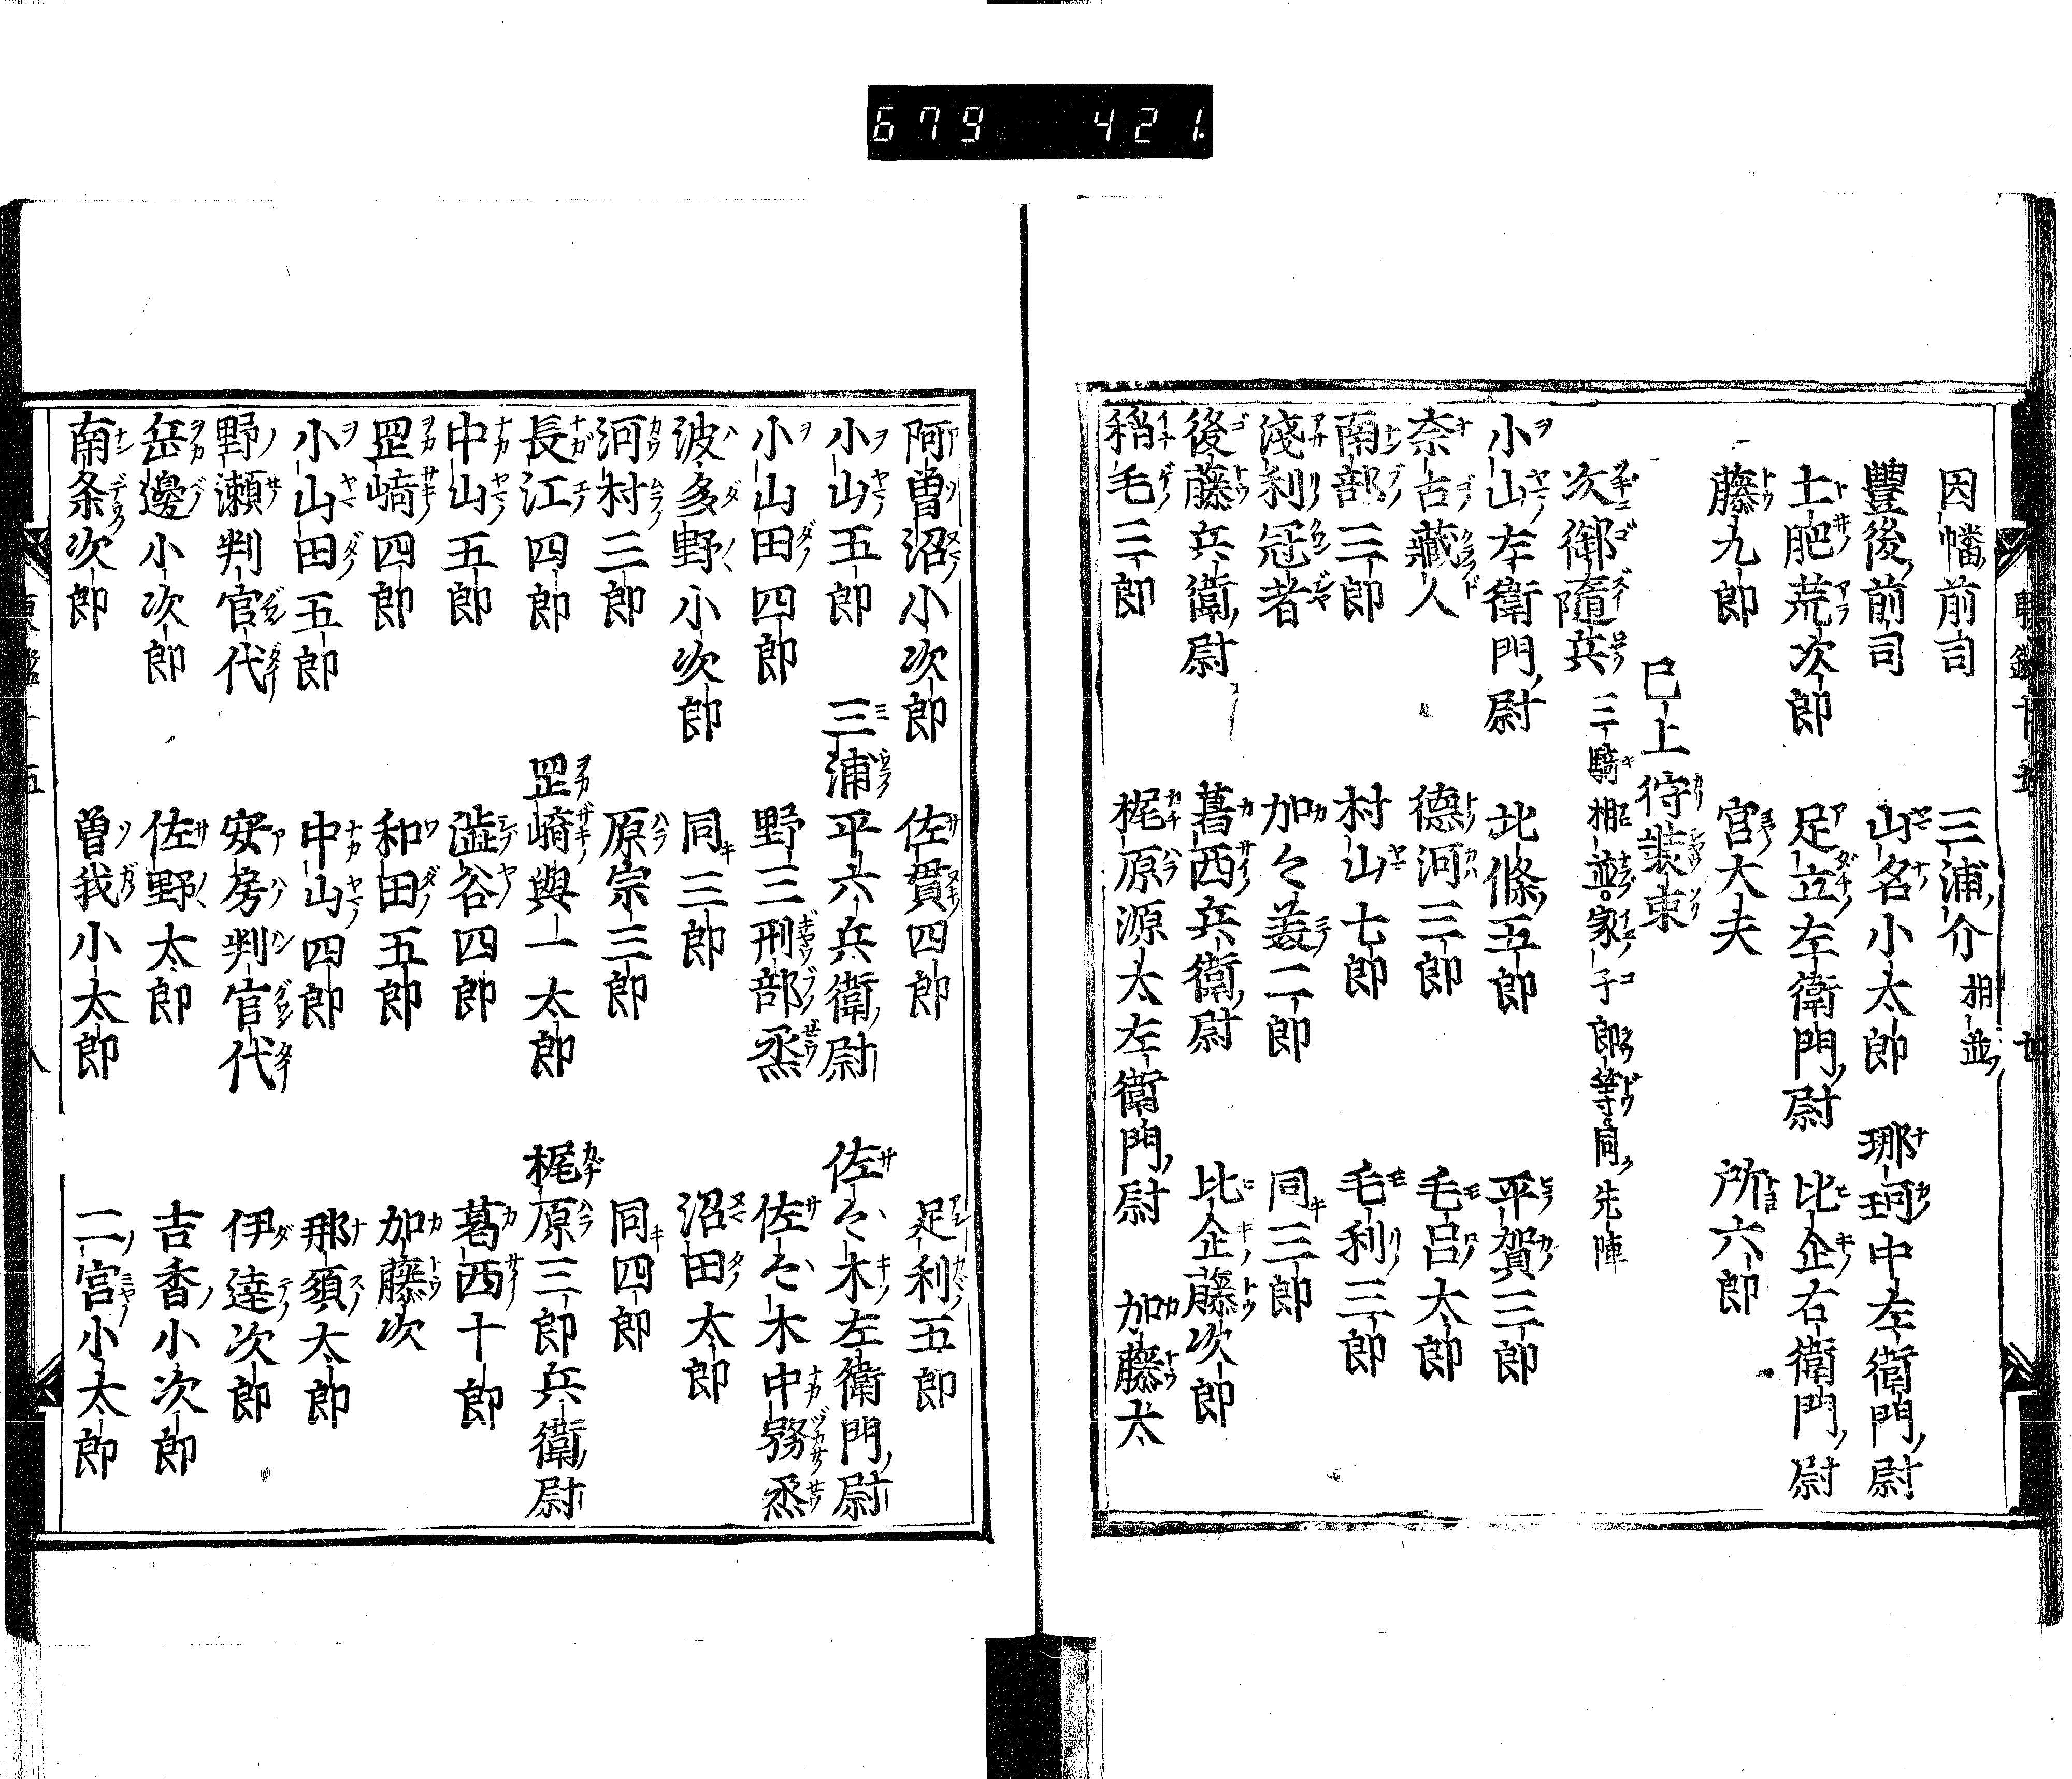 679 421.
因幡前司 三浦介 相並
豐後前司 山名小太郎 那珂中左衛門尉
土肥荒次郎 足立左衛門尉 比企右衛門尉
藤九郎 宮大夫 所六郎
巳上狩裝束
次御隨兵 三騎相並家子郎等同先陣
小山左衛門尉 北條五郎 平賀三郎
奈古藏人 德河三郎 毛呂太郎
南部三郎 村山七郎 毛利三郎
淺利冠者 加々美二郎 同三郎
後藤兵衛尉 葛西兵衛尉 比企藤次郎
稲毛三郎 梶原源太左衛門尉 加藤太
阿曽沼小次郎 佐貫四郎 足利五郎
小山五郎 三浦平六兵衛尉 佐々木左衛門尉
小山田四郎 野三刑部烝 佐々木中務烝
波多野小次郎 同三郎 沼田太郎
河村三郎 原宗三郎 同四郎
長江四郎 罡崎與一太郎 梶原三郎兵衛尉
中山五郎 澁谷四郎 葛西十郎
罡崎四郎 和田五郎 加藤次
小山田五郎 中山四郎 那須太郎
野瀬判官代 安房判官代 伊逹次郎
岳邊小次郎 佐野太郎 吉香小次郎
南条次郎 曽我小太郎 二宮小太郎